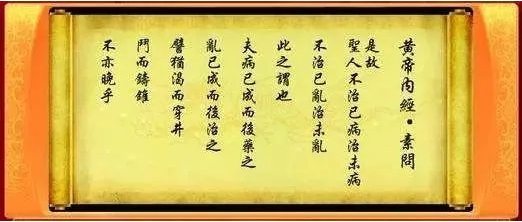 黄帝内經•素問
是故
聖人不治已病治未病
不治已亂治未亂
此之謂也
夫病已成而後藥之
亂已成而後治之
譬猶渴而穿井
鬥而鑄錐
不亦晚乎